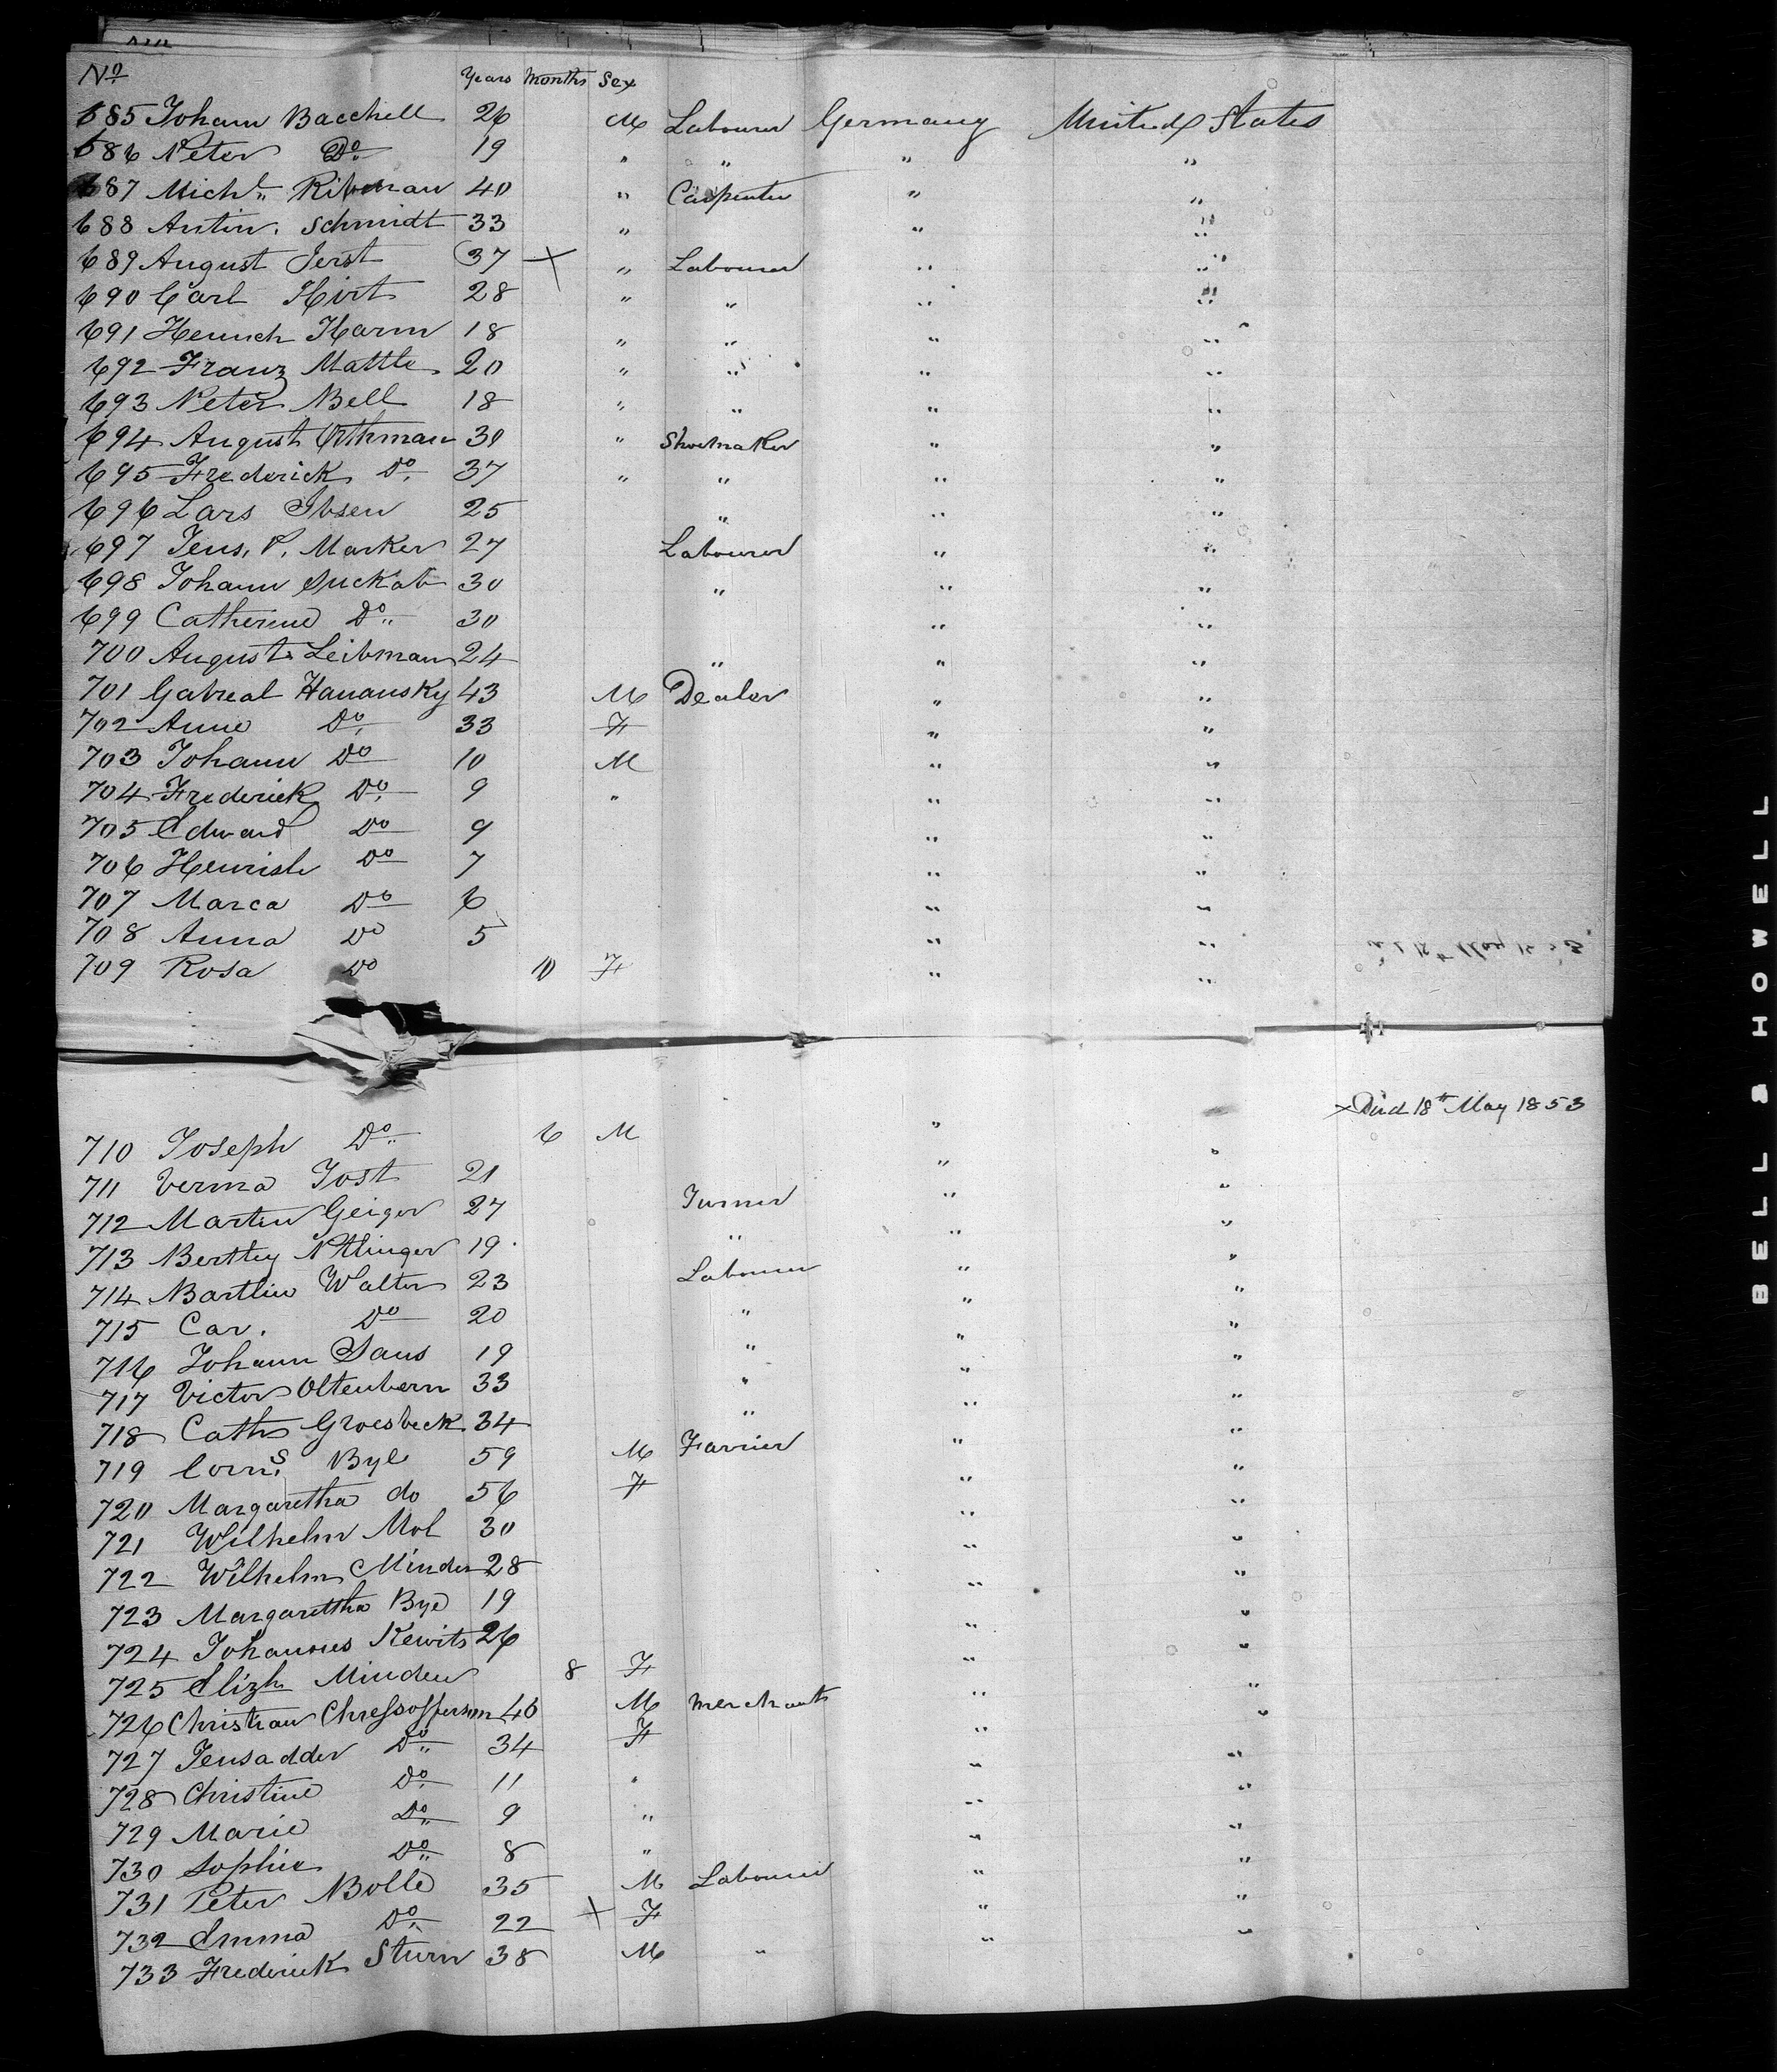 No Years Months Sex
685 Johann Bacchell 26 M Labourer Germany United States
686 Peter Do 19 " " " "
687 Michl. Ribman 40 " Carpenter " "
688 Antin. Schmidt 33 " " "
689 August Jerst 37 X " Labourer " "
690 Carl Hirt 28 " " " "
691 Henrich Harm 18 " " " "
692 Franz Mattle 20 " " " "
693 Peter Bell 18 " " " "
694 August Orthman 30 " Shoemaker " "
695 Frederick Do. 37 " " " "
696 Lars Ibsen 25 " " "
697 Jens. P. Marker 27 Labourer " "
698 Johann Suckab 30 " " "
699 Catherine Do 30 " "
700 August Leibman 24 " " "
701 Gabreal Hanansky 43 M Dealer " "
702 Anne Do 33 F " "
703 Johann Do 10 M " "
704 Frederick Do. 9 " " "
705 Edward Do 9 " "
706 Henrish Do 7 " "
707 Marca Do 6 " "
708 Anna Do 5 " "
709 Rosa Do 10 F " "
X Died 18th May 1853
710 Joseph Do 6 M " "
711 Verma Jost 21 " "
712 Martin Geiger 27 Turner " "
713 Berttey Ntlinger 19 " " "
714 Bartlin Walter 23 Labourer " "
715 Car. Do 20 " " "
716 Johann Saus 19 " " "
717 Victor Oltenbern 33 " " "
718 Cath Groesbeck 34 " " "
719 Corns. Bye 59 M Farrier " "
720 Margaretha do 56 F " "
721 Wilhelm Mol 30 " "
722 Wilhelm Minden 28 " "
723 Margarettha Bye 19 " "
724 Johannes Kewits 26 " "
725 Elizh Minden 8 F " "
726 Christian Chressofferson 40 M Merchant " "
727 Jensadder Do 34 F " "
728 Christine Do. 11 " " "
729 Marie Do 9 " " "
730 Sophie Do 8 " " "
731 Peter Bolle 35 M Labourer " "
732 Emma Do. 22 X F " "
733 Frederick Sturn 38 M " " "
BELL & HOWELL